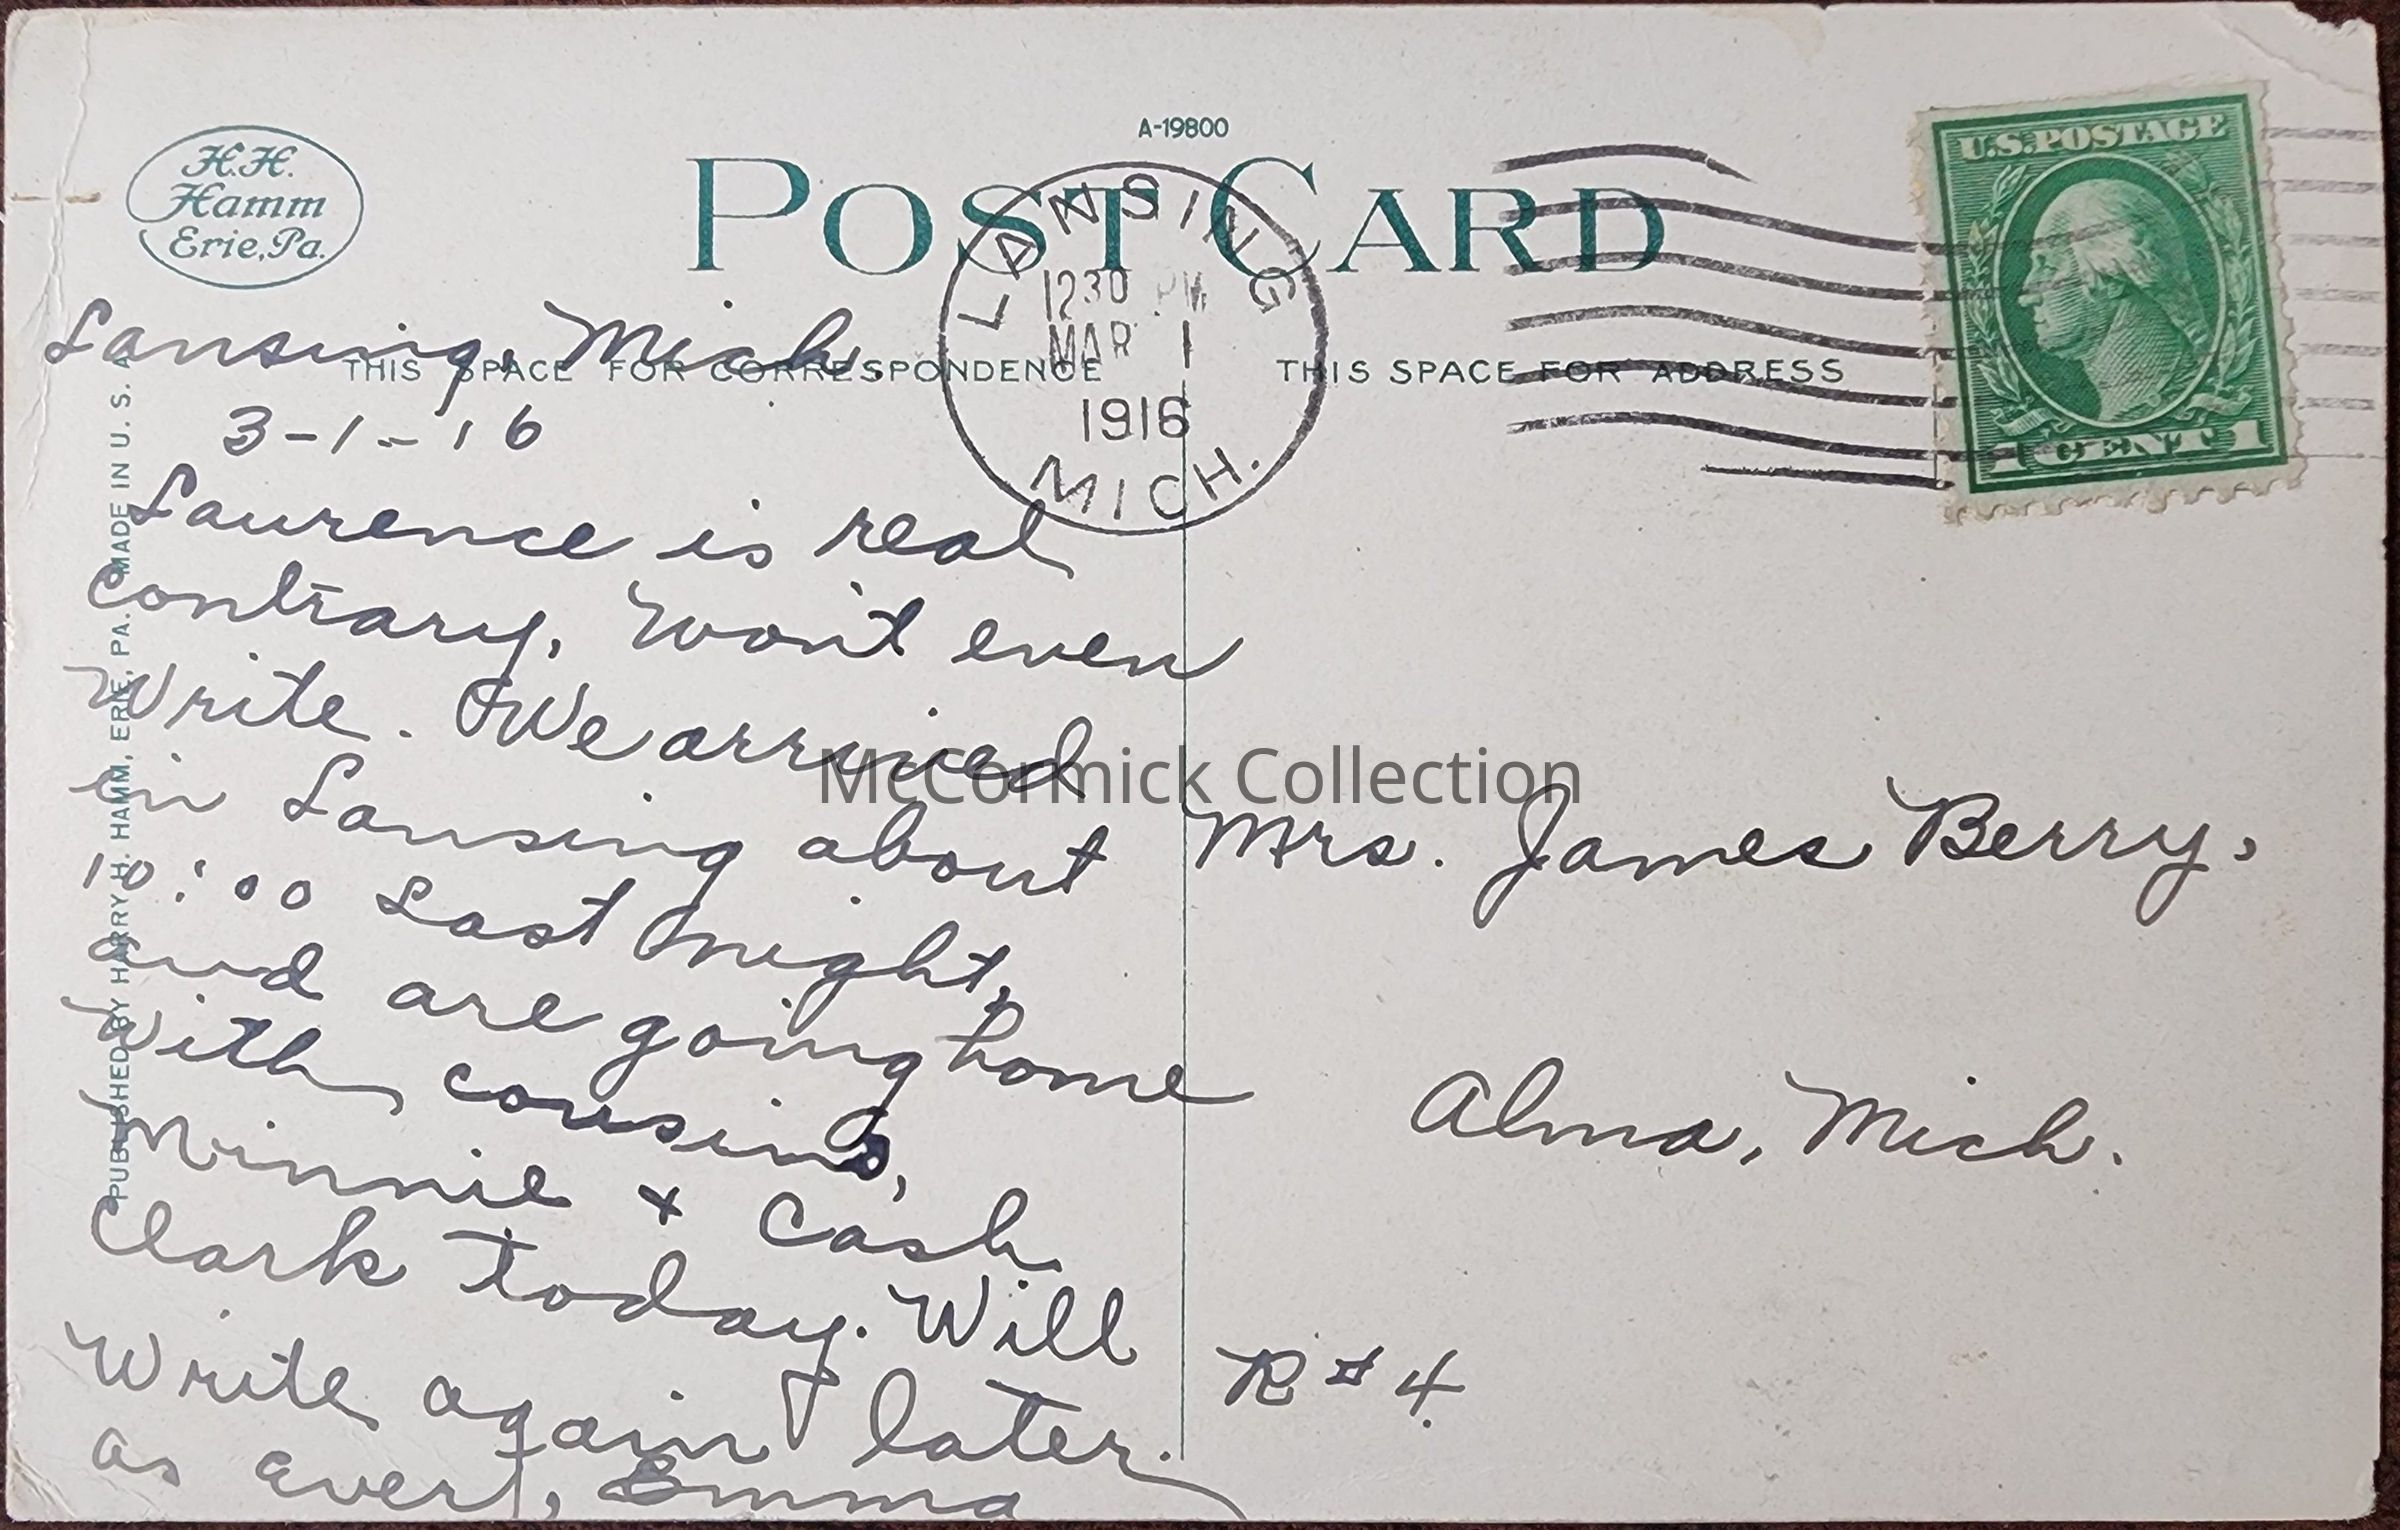 A-19800
H.H.
Hamm
Erie, Pa.
POST CARD
LANSING
1230 PM
MAR 1
1916
MICH.
U.S. POSTAGE
1 CENT 1
THIS SPACE FOR CORRESPONDENCE
THIS SPACE FOR ADDRESS
PUBLISHED BY HARRY H. HAMM, ERIE, PA. MADE IN U. S. A.
Lansing, Mich.
3-1-16
Laurence is real
contrary. Won't even
Write. We arrived
in Lansing about
10:00 Last night,
and are going home
with cousins,
Minnie + Cash
Clark today. Will
Write again later.
as ever, Emma
Mrs. James Berry,
Alma, Mich.
R # 4
McCormick Collection